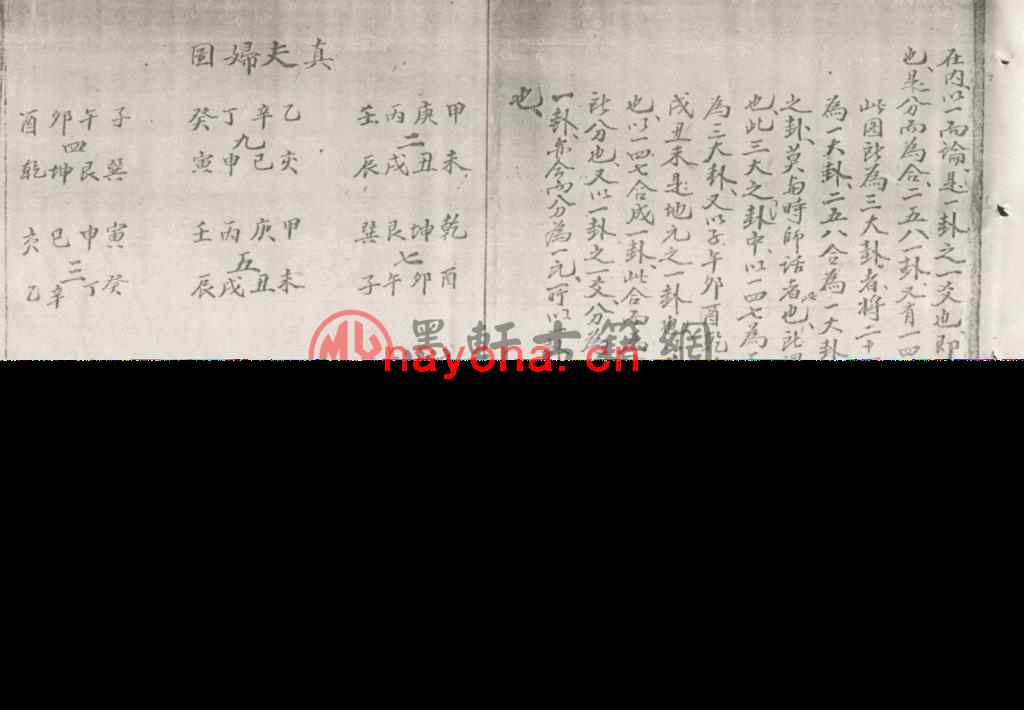 在内以一而論是一卦之一爻也即
也是分而為合二五八一卦又有一四
此因所為三大卦者將二十
為一大卦二五八合為一大卦
之卦莫與時師話者也此
也此三大之卦中以一四七為
為三大卦又以子午卯酉乾
戌丑未是地元之一卦也
也以一四七合成一卦此合而
所分也又以一卦之一爻分為
一卦亦合而分為一元所以
也
真夫婦圖
甲庚丙壬
二
未丑戌辰
乾坤艮巽
七
酉卯午子
乙辛丁癸
九
亥巳申寅
甲庚丙壬
五
未丑戌辰
子午卯酉
四
巽艮坤乾
寅申巳亥
三
癸丁辛乙
墨軒古籍網
nayona.cn